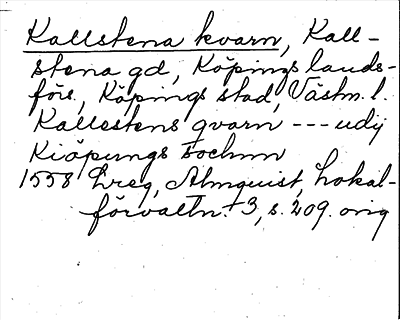 Kallstena kvarn, Kall-
stena gd, Köpings lands-
förs, Köpings stad, Västm. l.
Kallestens qvarn --- udij
Kiöpungs sochnn
1558 Lreg, Almquist, Lokal-
förvaltn. 3, s. 209. orig